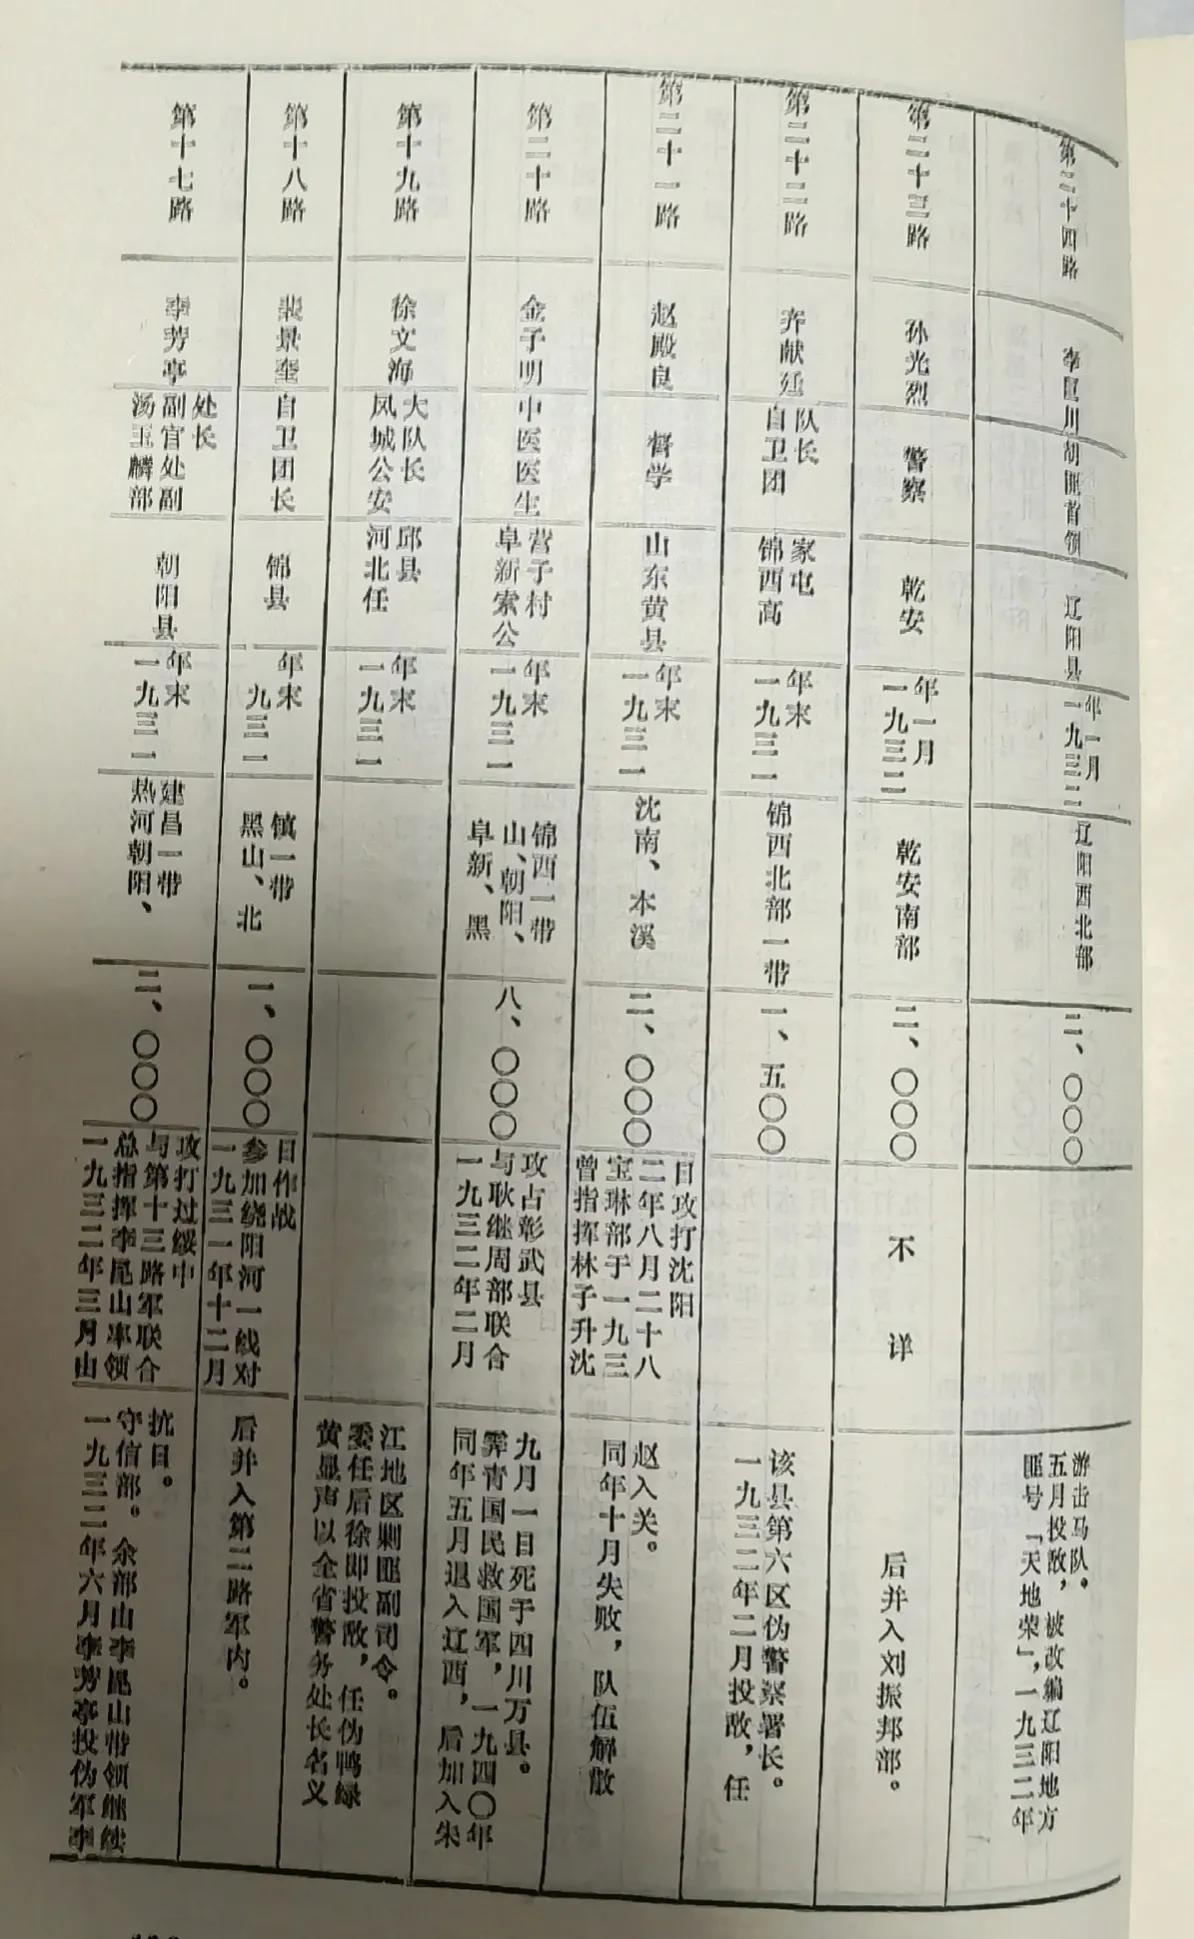 第十七路
李芳亭
汤玉麟部
副官处副
处长
朝阳县
一九三一
年末
热河朝阳、
建昌一带
二、〇〇〇
一九三二年三月由
总指挥李昆山率领
与第十三路军联合
攻打过绥中
一九三二年六月李芳亭投伪军李
守信部。余部由李昆山带领继续
抗日。
第十八路
裴景奎
自卫团长
锦县
一九三一
年末
黑山、北
镇一带
一、〇〇〇
一九三一年十二月
参加绕阳河一线对
日作战
后并入第二路军内。
第十九路
徐文海
凤城公安
大队长
河北任
邱县
一九三一
年末
黄显声以全省警务处长名义
委任后徐即投敌，任伪鸭绿
江地区剿匪副司令。
第二十路
金子明
中医医生
阜新索公
营子村
一九三一
年末
阜新、黑
山、朝阳、
锦西一带
八、〇〇〇
一九三二年二月
与耿继周部联合
攻占彰武县
同年五月退入辽西，后加入朱
霁青国民救国军，一九四〇年
九月一日死于四川万县。
第二十一路
赵殿良
督学
山东黄县
一九三一
年末
沈南、本溪
二、〇〇〇
曾指挥林子升沈
宝琳部于一九三
二年八月二十八
日攻打沈阳
同年十月失败，队伍解散
赵入关。
第二十二路
齐献廷
自卫团
队长
锦西高
家屯
一九三一
年末
锦西北部一带
一、五〇〇
一九三二年二月投敌，任
该县第六区伪警察署长。
第二十三路
孙光烈
警察
乾安
一九三二
年一月
乾安南部
二、〇〇〇
不详
后并入刘振邦部。
第二十四路
胡匪首领
辽阳县
一九三二
年一月
辽阳西北部
二、〇〇〇
匪号“天地荣”，一九三二年
五月投敌，被改编辽阳地方
游击马队。